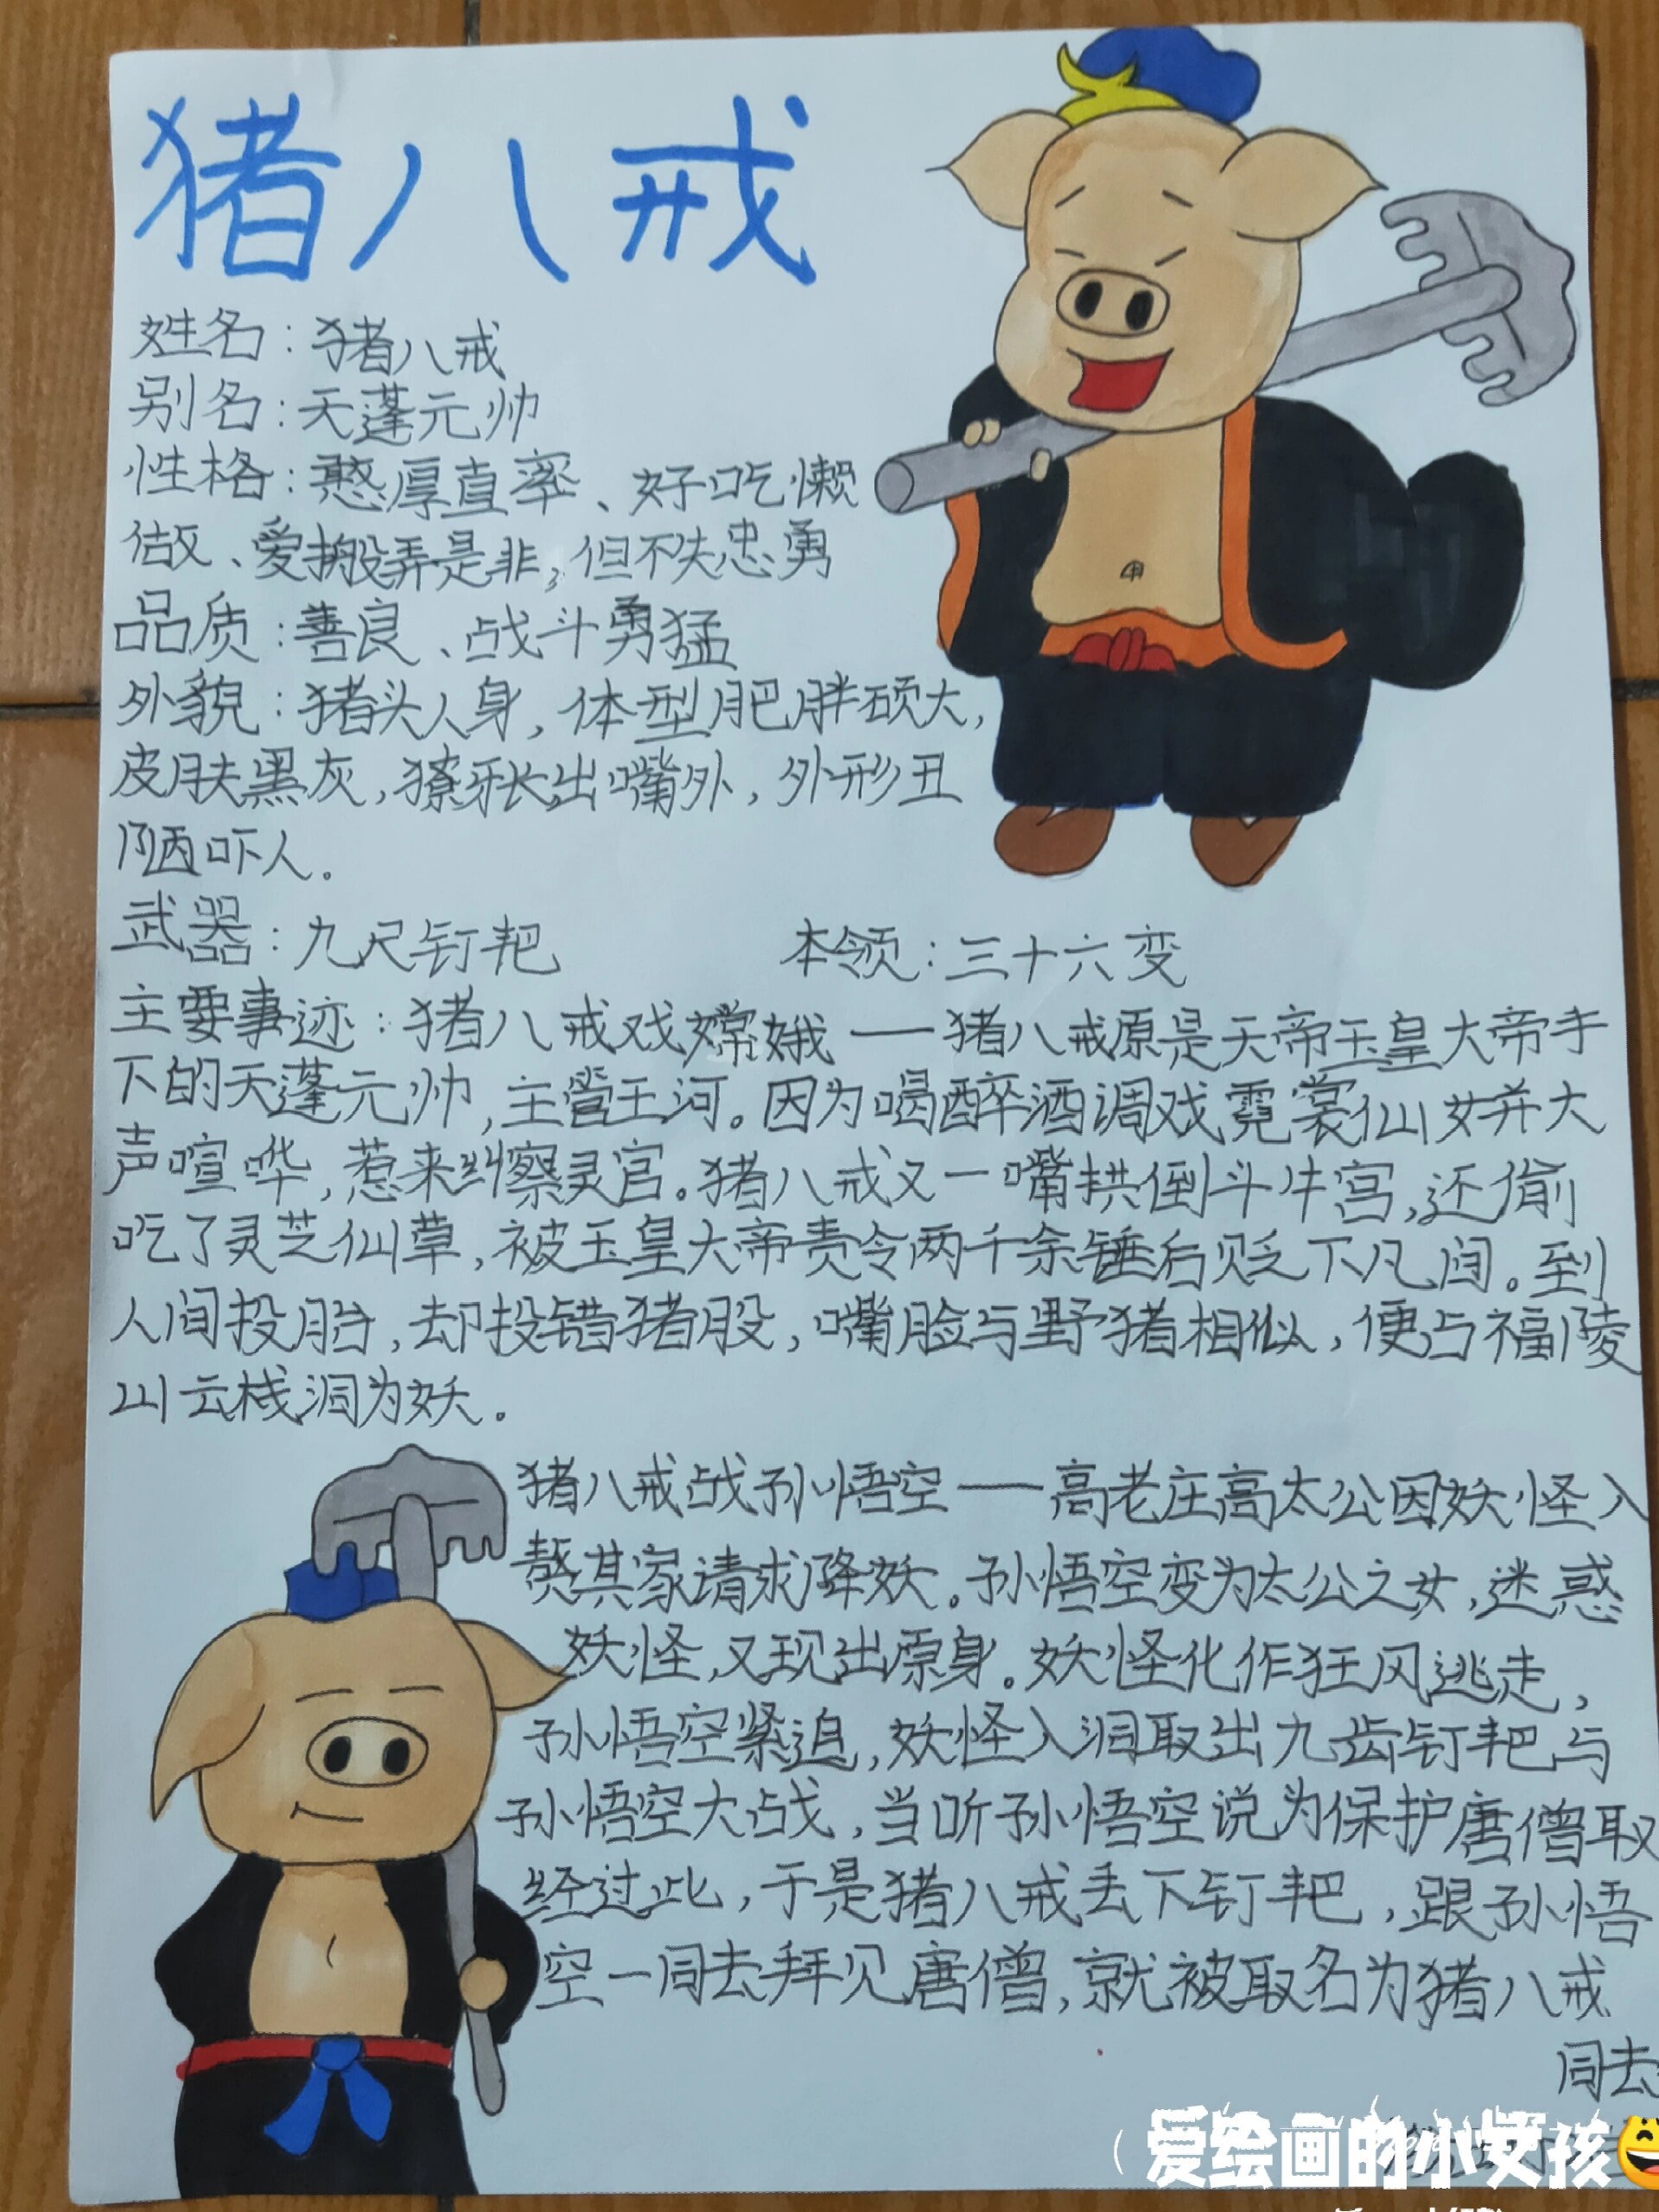 猪八戒
姓名：猪八戒
别名：天蓬元帅
性格：憨厚直率、好吃懒
做、爱搬弄是非，但不失忠勇
品质：善良、战斗勇猛
外貌：猪头人身，体型肥胖硕大，
皮肤黑灰，獠牙长出嘴外，外形丑
陋吓人。
武器：九尺钉耙 本领：三十六变
主要事迹：猪八戒戏嫦娥——猪八戒原是天帝玉皇大帝手
下的天蓬元帅，主管王河。因为喝醉酒调戏霓裳仙女并大
声喧哗，惹来纠察灵官。猪八戒又一嘴拱倒斗牛宫，还偷
吃了灵芝仙草，被玉皇大帝责令两千余锤后贬下凡间。到
人间投胎，却投错猪股，嘴脸与野猪相似，便占福陵
山云栈洞为妖。
猪八戒战孙悟空——高老庄高太公因妖怪入
赘其家请求降妖。孙悟空变为太公之女，迷惑
妖怪，又现出原身。妖怪化作狂风逃走，
孙悟空紧追，妖怪入洞取出九齿钉耙与
孙悟空大战，当听孙悟空说为保护唐僧取
经过此，于是猪八戒丢下钉耙，跟孙悟
空一同去拜见唐僧，就被取名为猪八戒
同去
（爱绘画的小女孩